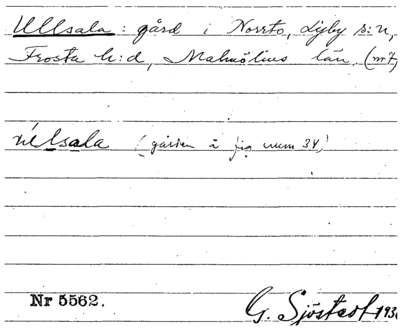 Ullsala : gård i Norrto, Lyby s:n,
Frosta h:d, Malmöhus län. (m7)
(gården å fig num 34)
Nr 5562.
G. Sjöstedt 193